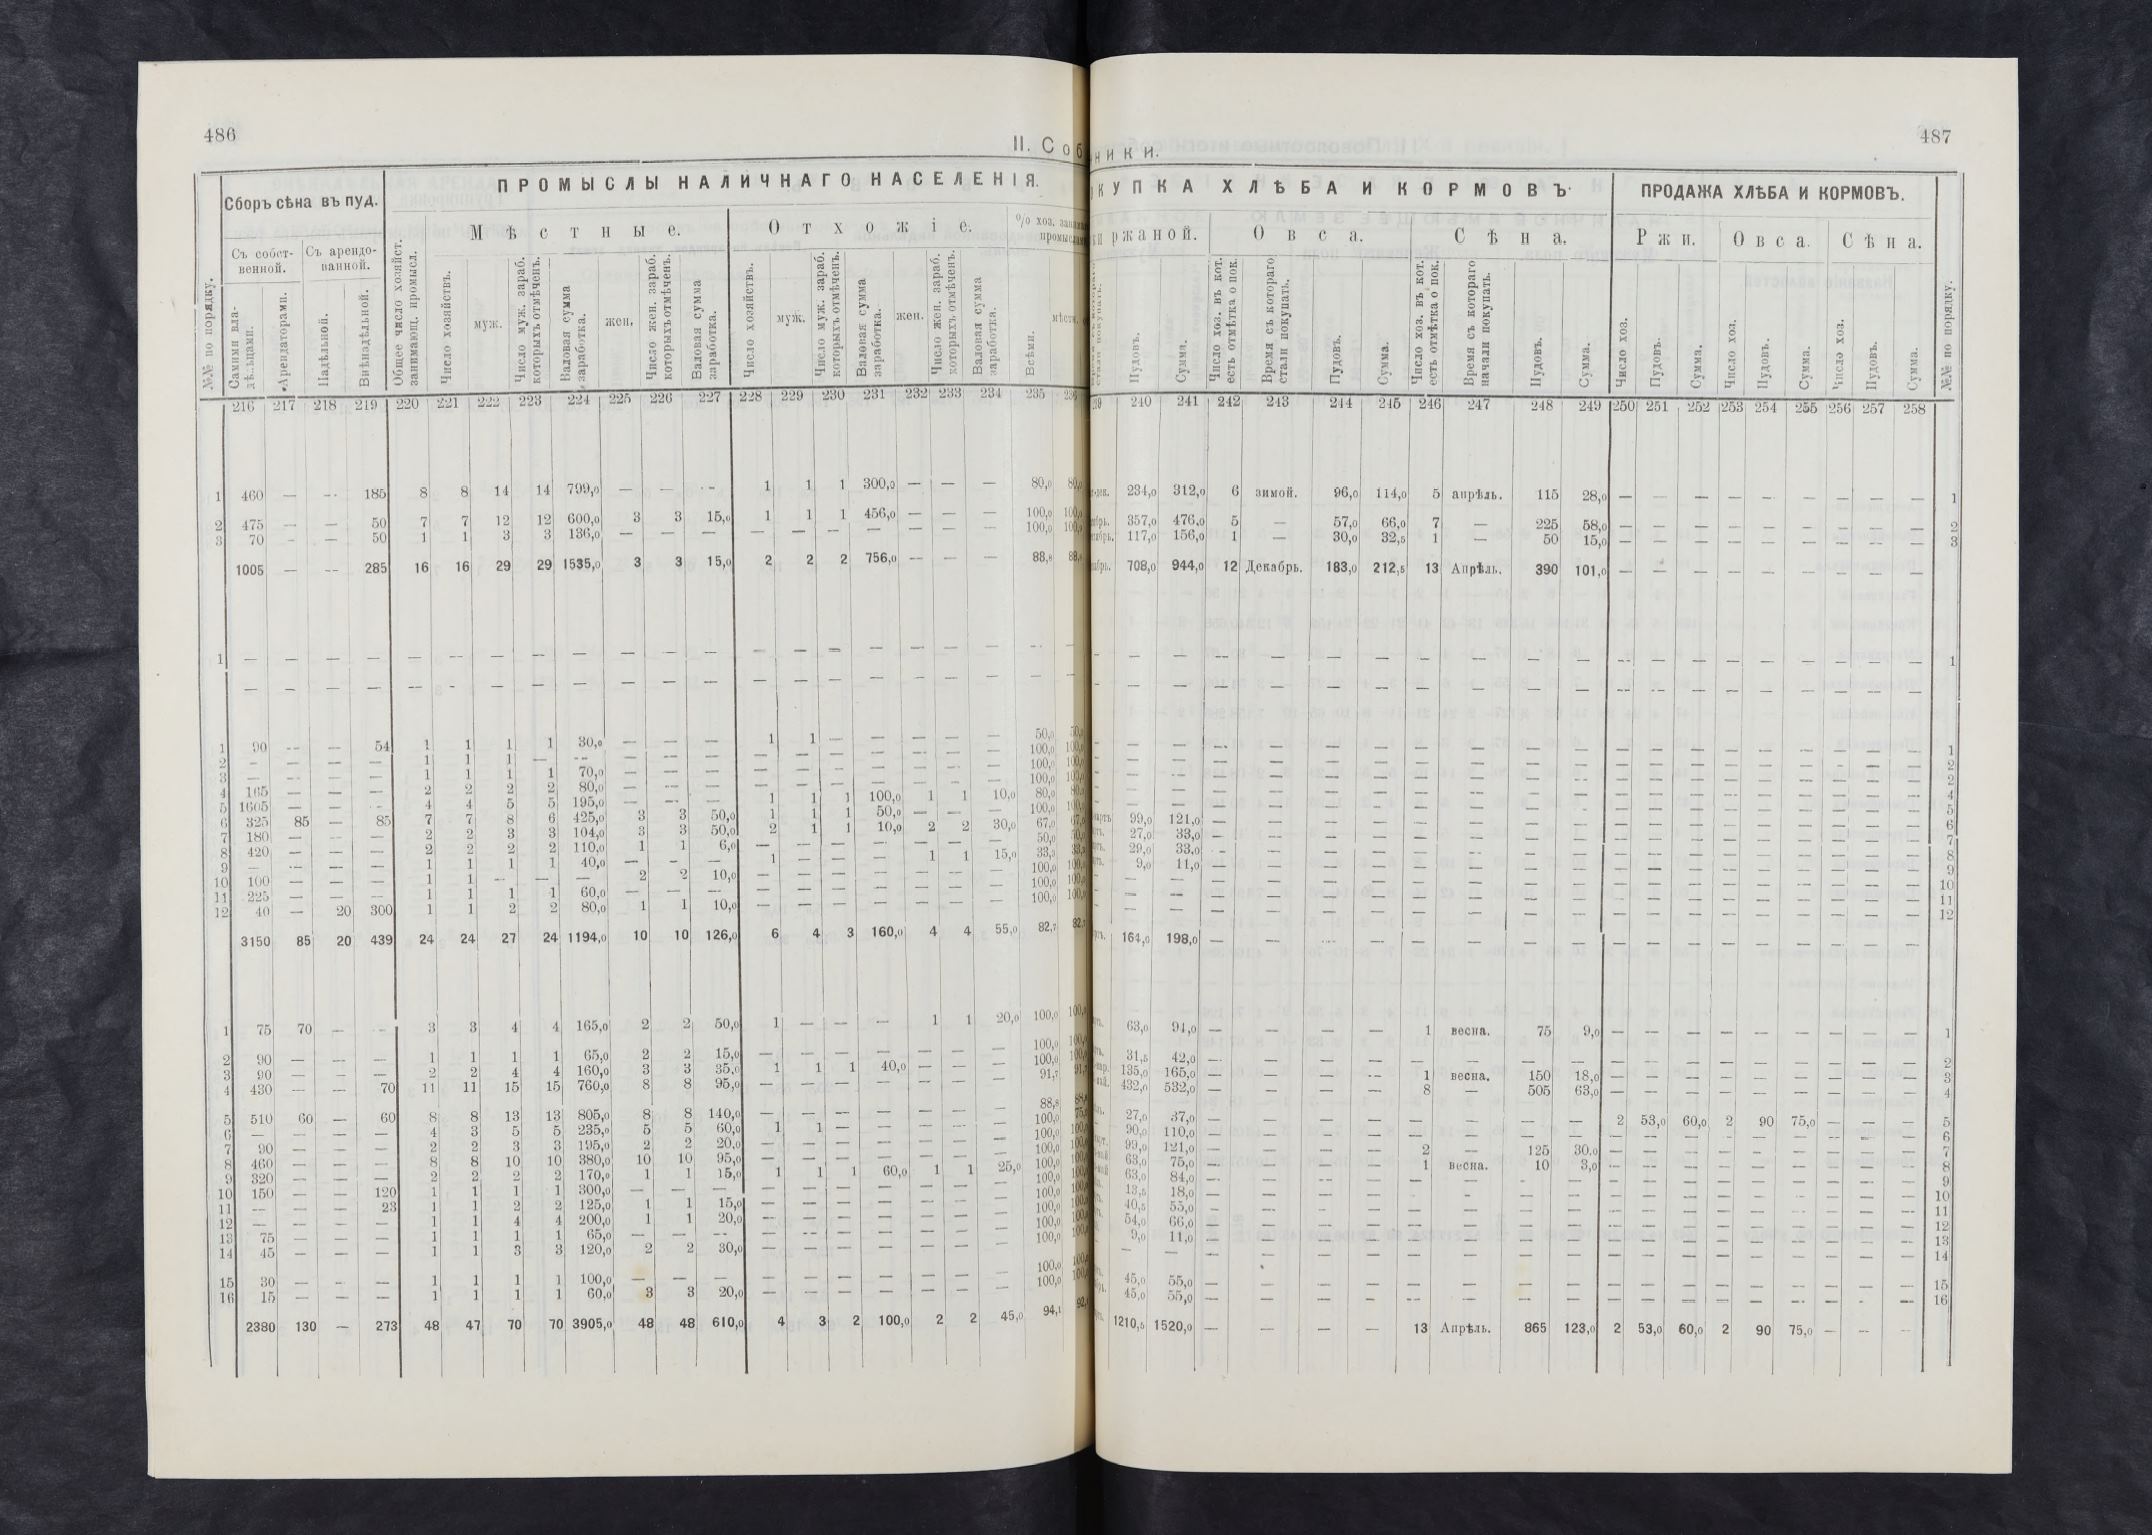 486
II. Соб
№№ по порядку.
Сборъ сѣна въ пуд.
ПРОМЫСЛЫ НАЛИЧНАГО НАСЕЛЕНІЯ.
Съ собственной.
Съ арендованной.
Мѣстные.
Отхожіе.
% хоз.
Самими владѣльцами.
Арендаторами.
Надѣльной.
Внѣнадѣльной.
Общее число хозяйст. занимающ. промысл.
Число хозяйствъ.
муж.
Число муж. зараб. которыхъ отмѣченъ.
Валовая сумма заработка.
жен.
Число жен. зараб. которыхъ отмѣченъ.
Валовая сумма заработка.
Число хозяйствъ.
муж.
Число муж. зараб. которыхъ отмѣченъ.
Валовая сумма заработка.
жен.
Число жен. зараб. которыхъ отмѣченъ.
Валовая сумма заработка.
Всѣми.
216 217 218 219 220 221 222 223 224 225 226 227 228 229 230 231 232 233 234 235 236
1 460 — — 185 8 8 14 14 799,0 — — — 1 1 1 300,0 — — — 80,0
2 475 — — 50 7 7 12 12 600,0 3 3 15,0 1 1 1 456,0 — — — 100,0
3 70 — — 50 1 1 3 3 136,0 — — — — — — — — — — 100,0
1005 — — 285 16 16 29 29 1535,0 3 3 15,0 2 2 2 756,0 — — — 88,8
1 — — — — — — — — — — — — — — — — — — — —
— — — — — — — — — — — — — — — — — — — —
1 90 — — 54 1 1 1 1 30,0 — — — 1 1 — — — — — 50,0
2 — — — — 1 1 1 — — — — — — — — — — — — 100,0
3 — — — — 1 1 1 1 70,0 — — — — — — — — — — 100,0
4 165 — — — 2 2 2 2 80,0 — — — — — — — — — — 100,0
5 1605 — — — 4 4 5 5 195,0 — — — 1 1 1 100,0 1 1 10,0 80,0
6 325 85 — 85 7 7 8 6 425,0 3 3 50,0 1 1 1 50,0 — — — 100,0
7 180 — — — 2 2 3 3 104,0 3 3 50,0 2 1 1 10,0 2 2 30,0 67,0
8 420 — — — 2 2 2 2 110,0 1 1 6,0 — — — — — — — 50,0
9 — — — — 1 1 1 1 40,0 — — — 1 — — — 1 1 15,0 33,3
10 100 — — — 1 1 — — — 2 2 10,0 — — — — — — — 100,0
11 225 — — — 1 1 1 1 60,0 — — — — — — — — — — 100,0
12 40 — 20 300 1 1 2 2 80,0 1 1 10,0 — — — — — — — 100,0
3150 85 20 439 24 24 27 24 1194,0 10 10 126,0 6 4 3 160,0 4 4 55,0 82,7
1 75 70 — — 3 3 4 4 165,0 2 2 50,0 1 — — — 1 1 20,0 100,0
2 90 — — — 1 1 1 1 65,0 2 2 15,0 — — — — — — — 100,0
3 90 — — — 2 2 4 4 160,0 3 3 35,0 1 1 1 40,0 — — — 100,0
4 430 — — 70 11 11 15 15 760,0 8 8 95,0 — — — — — — — 91,7
5 510 60 — 60 8 8 13 13 805,0 8 8 140,0 — — — — — — — 88,8
6 — — — — 4 3 5 5 235,0 5 5 60,0 1 1 — — — — — 100,0
7 90 — — — 2 2 3 3 195,0 2 2 20,0 — — — — — — — 100,0
8 460 — — — 8 8 10 10 380,0 10 10 95,0 — — — — — — — 100,0
9 320 — — — 2 2 2 2 170,0 1 1 15,0 1 1 1 60,0 1 1 25,0 100,0
10 150 — — 120 1 1 1 1 300,0 — — — — — — — — — — 100,0
11 — — — 23 1 1 2 2 125,0 1 1 15,0 — — — — — — — 100,0
12 — — — — 1 1 4 4 200,0 1 1 20,0 — — — — — — — 100,0
13 75 — — — 1 1 1 1 65,0 — — — — — — — — — — 100,0
14 45 — — — 1 1 3 3 120,0 2 2 30,0 — — — — — — — 100,0
15 30 — — — 1 1 1 1 100,0 — — — — — — — — — — 100,0
16 15 — — — 1 1 1 1 60,0 3 3 20,0 — — — — — — — 100,0
2380 130 — 273 48 47 70 70 3905,0 48 48 610,0 4 3 2 100,0 2 2 45,0 94,1
487
ники.
КУПКА ХЛѢБА И КОРМОВЪ.
ПРОДАЖА ХЛѢБА И КОРМОВЪ.
№№ по порядку.
ржаной.
Овса.
Сѣна.
Ржи.
Овса.
Сѣна.
Пудовъ.
Сумма.
Число хоз. въ кот. есть отмѣтка о пок.
Время съ котораго стали покупать.
Пудовъ.
Сумма.
Число хоз. въ кот. есть отмѣтка о пок.
Время съ котораго начали покупать.
Пудовъ.
Сумма.
Число хоз.
Пудовъ.
Сумма.
Число хоз.
Пудовъ.
Сумма.
Число хоз.
Пудовъ.
Сумма.
240 241 242 243 244 245 246 247 248 249 250 251 252 253 254 255 256 257 258
234,0 312,0 6 зимой. 96,0 114,0 5 апрѣль. 115 28,0 — — — — — — — — — 1
357,0 476,0 5 — 57,0 66,0 7 — 225 58,0 — — — — — — — — — 2
117,0 156,0 1 — 30,0 32,5 1 — 50 15,0 — — — — — — — — — 3
708,0 944,0 12 Декабрь. 183,0 212,5 13 Апрѣль. 390 101,0 — — — — — — — — —
— — — — — — — — — — — — — — — — — — — 1
— — — — — — — — — — — — — — — — — — —
— — — — — — — — — — — — — — — — — — — 1
— — — — — — — — — — — — — — — — — — — 2
— — — — — — — — — — — — — — — — — — — 2
— — — — — — — — — — — — — — — — — — — 4
— — — — — — — — — — — — — — — — — — — 5
99,0 121,0 — — — — — — — — — — — — — — — — — 6
27,0 33,0 — — — — — — — — — — — — — — — — — 7
29,0 33,0 — — — — — — — — — — — — — — — — — 8
9,0 11,0 — — — — — — — — — — — — — — — — — 9
— — — — — — — — — — — — — — — — — — — 10
— — — — — — — — — — — — — — — — — — — 11
— — — — — — — — — — — — — — — — — — — 12
164,0 198,0 — — — — — — — — — — — — — — — — —
63,0 94,0 — — — — 1 весна. 75 9,0 — — — — — — — — — 1
31,5 42,0 — — — — — — — — — — — — — — — — — 2
135,0 165,0 — — — — 1 весна. 150 18,0 — — — — — — — — — 3
432,0 532,0 — — — — 8 — 505 63,0 — — — — — — — — — 4
27,0 37,0 — — — — — — — — 2 53,0 60,0 2 90 75,0 — — — 5
90,0 110,0 — — — — — — — — — — — — — — — — — 6
99,0 121,0 — — — — 2 — 125 30,0 — — — — — — — — — 7
63,0 75,0 — — — — 1 весна. 10 3,0 — — — — — — — — — 8
63,0 84,0 — — — — — — — — — — — — — — — — — 9
13,5 18,0 — — — — — — — — — — — — — — — — — 10
40,5 55,0 — — — — — — — — — — — — — — — — — 11
54,0 66,0 — — — — — — — — — — — — — — — — — 12
9,0 11,0 — — — — — — — — — — — — — — — — — 13
— — — — — — — — — — — — — — — — — — — 14
45,0 55,0 — — — — — — — — — — — — — — — — — 15
45,0 55,0 — — — — — — — — — — — — — — — — — 16
1210,5 1520,0 — — — — 13 Апрѣль. 865 123,0 2 53,0 60,0 2 90 75,0 — — —